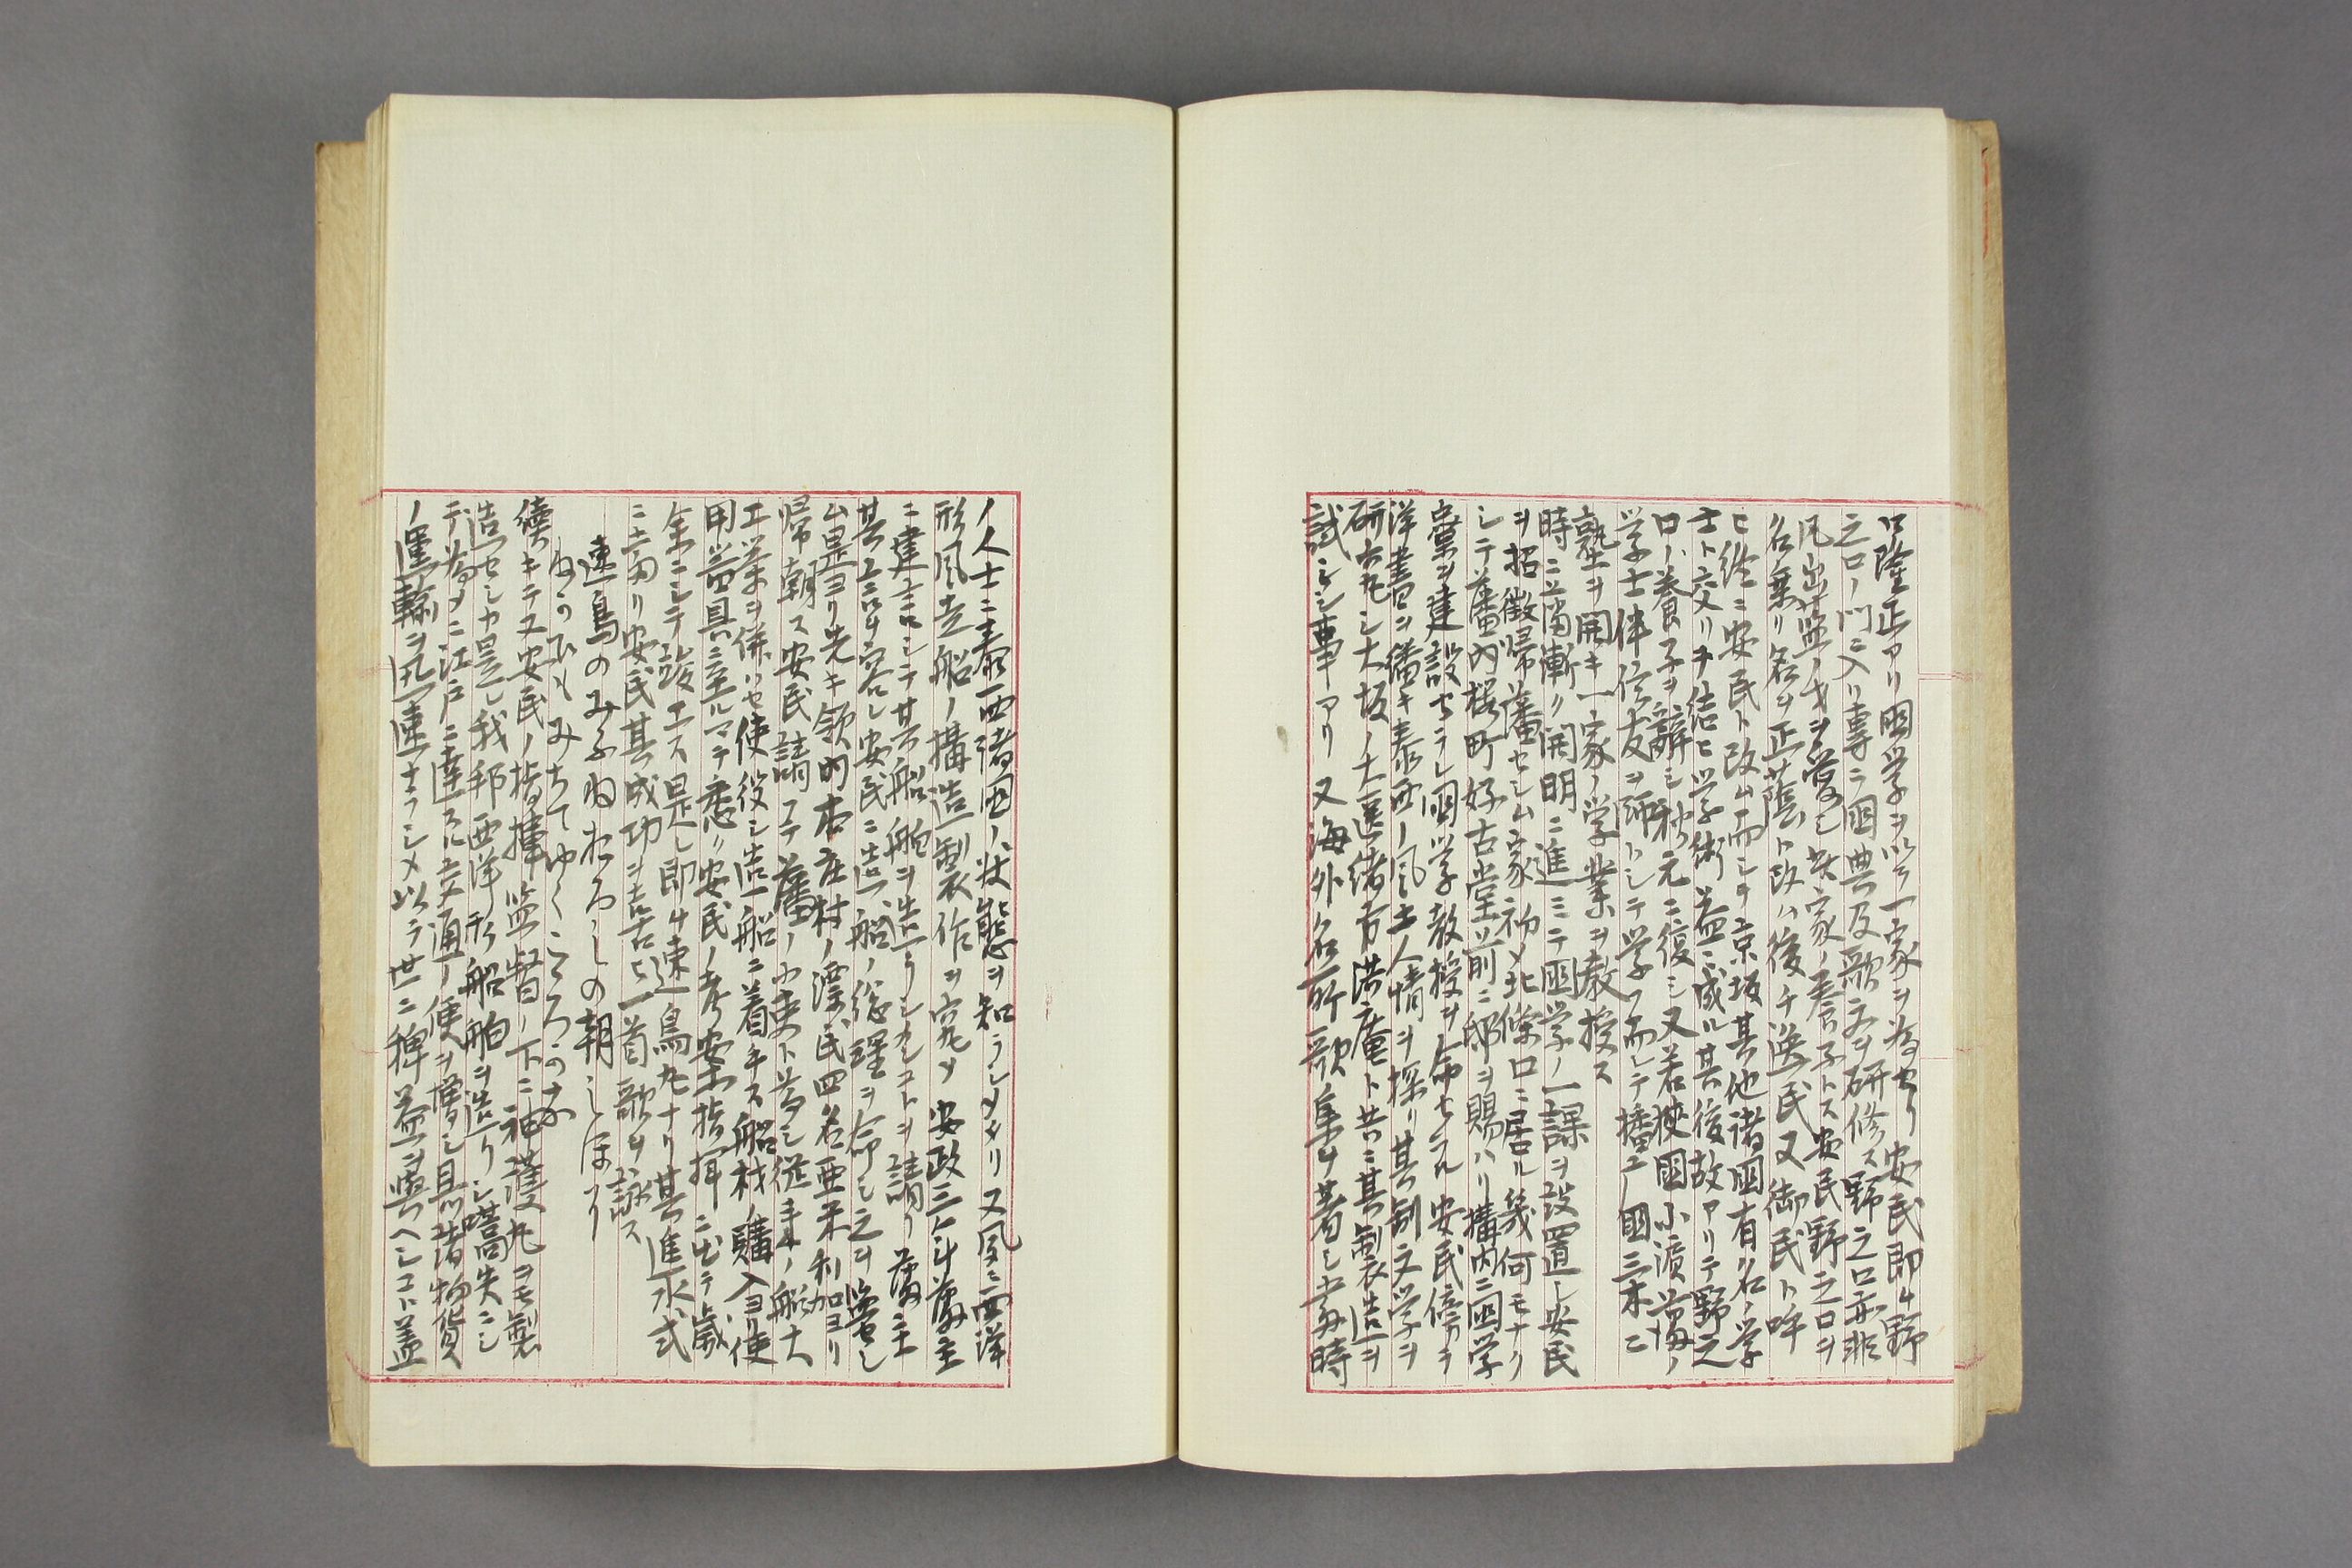 口隆正アリ國学ヲ以テ一家ヲ為セリ安民即チ野
之口ノ門ニ入リ専ラ國典及歌文ヲ研修ス野之口亦非
凡出藍ノ才ヲ愛シ其家ノ養子トス安民野之口ヲ
名乗リ名ヲ正蔭ト改ム後チ逸民又御民ト呼
ヒ終ニ安民ト改ム而シテ京坂其他諸國有名ノ学
士ト交リヲ結ヒ学術益ニ成ル其後故アリテ野之
口ノ養子ヲ辭シ秋元ニ復シ又若狹國小濱藩ノ
学士伴信友ヲ師トシテ学フ而シテ播ノ國三木ニ
塾ヲ開キ一家ノ学業ヲ教授ス
時ニ立藩漸ク開明ニ進ミテ國学ノ一課ヲ設置シ安民
ヲ招徴帰藩セシム家初メ北條口ニ居ル幾何モナク
シテ藩内桜町好古堂前ニ邸ヲ賜ハリ構内ニ國学
寮ヲ建設セラレ國学教授ヲ命セラル安民傍ラ
洋書ヲ繙キ泰西ノ風土人情ヲ探リ其制文学ヲ
研究シ大坂ノ大医緒方洪庵ト共ニ其製造ヲ
試シ事アリ又海外名所歌集ヲ著シ當時
ノ人士ニ泰西諸國ノ状態ヲ知ラシメタリ又夙ニ西洋
形風走船ノ搆造製作ヲ究メ安政三年藩主
ニ建言シテ其船舶ヲ造ラシカンコトヲ請フ藩主
其言ヲ容レ安民ニ造船ノ総理ヲ命シ之ヲ監セシ
ム是ヨリ先キ領内本庄村ノ漂民四名亜米利加ヨリ
帰朝ス安民請フテ藩ノ小吏ト為シ従来ノ船大
工業ヲ併リセ使役シ造船ニ着手ス船材ノ購入ヨリ使
用器具ニ至ルマテ悉ク安民ノ考案指揮ニ出テ歳
余ニシテ竣工ス是レ即チ速鳥丸ナリ其進水式
ニ當リ安民其成功ヲ喜ヒ一首歌ヲ詠ス
速鳥のみふねおろしの朝しほり
ねかひもみちてゆくこころかな
續キテ又安民ノ指揮監督ノ下ニ神護丸ヲモ製
造セシカ是レ我邦西洋形船舶ヲ造リシ嚆矢ニシ
テ為メニ江戸ニ達スル交通ノ便ヲ増シ且諸物貨
ノ運輸ヲ迅速ナラシメ以テ世ニ稗益ヲ與ヘシコト蓋